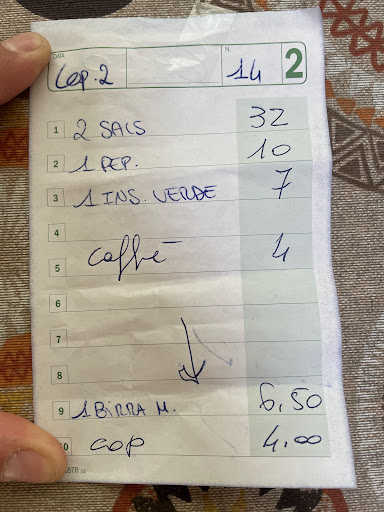 DATA N.
Cop. 2 14 2
1 2 SALS 32
2 1 PEP. 10
3 1 INS. VERDE 7
4
5 Caffè 4
6
7
8
9 1 BIRRA M. 6,50
10 COP 4,00